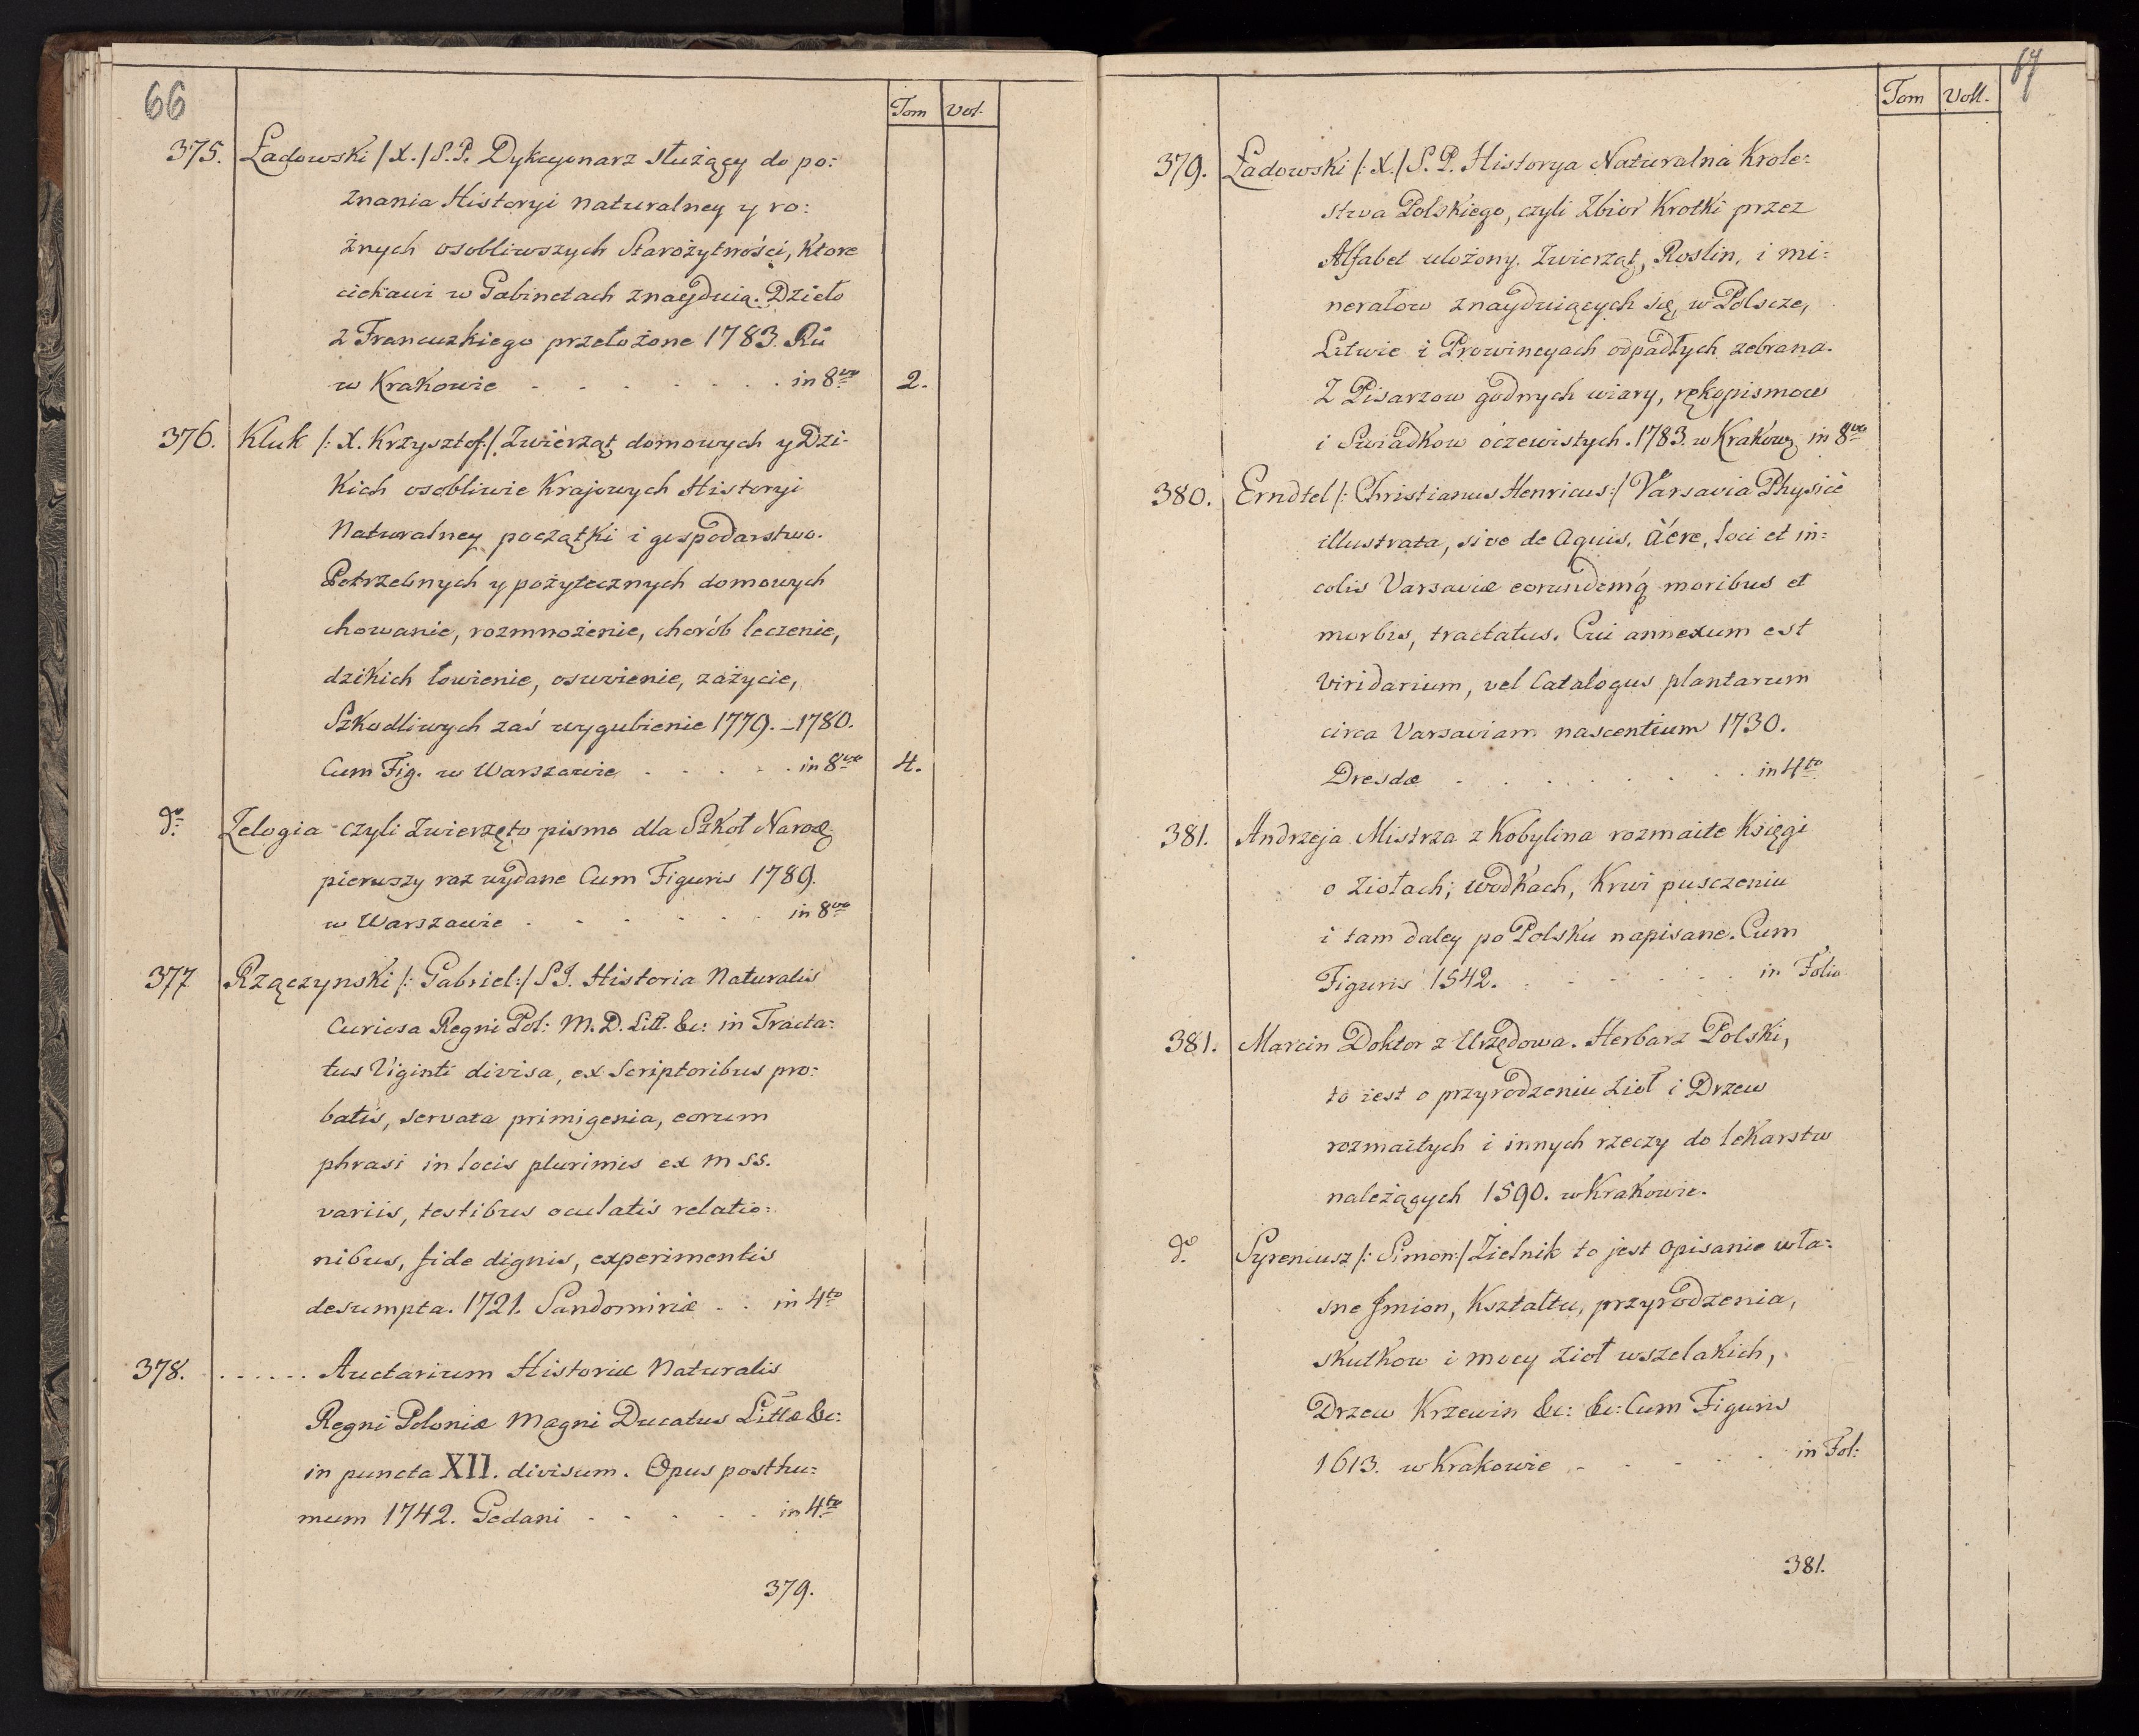 66
Tom Vol.
375. Ładowski /X./ S.P. Dykcyonarz służący do po:
znania Historyi naturalney y ro:
żnych osobliwszych Starożytności, Ktore
ciekawi w Gabinetach znayduią. Dzieło
z Francuzkiego przełożone 1783. Ru
w Krakowie - - - - - - - in 8vo 2.
376. Kluk /: X. Krzysztof:/ Zwierząt domowych y Dzi-
Kich osobliwie Krajowych Historyi
Naturalney początki i gospodarstwo.
Potrzebnych y pożytecznych domowych
chowanie, rozmnożenie, chorób leczenie,
dzikich łowienie, oswoienie, zażycie,
Szkodliwych zaś wygubienie 1779. - 1780.
Cum Fig. w Warszawie - - - - in 8vo 4.
do Zologia czyli Zwierzęto pismo dla Szkoł Narod
pierwszy raz wydane Cum Figuris 1789.
w Warszawie - - - - - - in 8vo
377 Rzączynski /: Gabriel:/ S I. Historia Naturalis
Curiosa Regni Pol: M. D. Litt. &c: in Tracta:
tus Viginti divisa, ex Scriptoribus pro:
batis, servata primigenia, eorum
phrasi in locis plurimis ex M SS.
variis, testibus oculatis relatio:
nibus, fide dignis, experimentis
desumpta. 1721. Sandomiriæ - - in 4to
378. . . . . . . Auctarium Historiæ Naturalis
Regni Poloniæ Magni Ducatus Littæ &c:
in puncta XII. divisum. Opus posthu:
mum 1742. Gedani - - - - - in 4to
379.
67
Tom Voll.
379. Ładowski /: X./ S. P. Historya Naturalna Krole:
stwa Polskiego, czyli Zbior Krotki przez
Alfabet ułożony. Zwierząt, Roslin, i mi:
nerałow znayduiących się w Polscze,
Litwie i Prowincyach odpadłych zebrana.
Z Pisarzow godnych wiary, rękopismow
i Swiadkow oczewistych. 1783. w Krakow in 8vo
380. Erndtel /: Christianus Henricus:/ Varsavia Physice
illustrata, sive de Aquis, äére, loci et in:
colis Varsaviæ eorundemq moribus et
morbis, tractatus. Cui annexum est
Viridarium, vel Catalogus plantarum
circa Varsaviam nascentium 1730.
Dresdæ - - - - - - - in 4to
381. Andrzeja Mistrza z Kobylina rozmaite Księgi
o ziołach; wodkach, Krwi pusczeniu
i tam daley po Polsku napisane. Cum
Figuris 1542. - - - - - in Folio
381. Marcin Doktor z Urzędowa. Herbarz Polski,
to iest o przyrodzeniu zioł i Drzew
rozmaitych i innych rzeczy do lekarstw
należących 1590. w Krakowie.
do Syreniusz /: Simon:/ Zielnik to jest Opisanie wła:
sne Jmion, Kształtu, przyrodzenia,
skutkow i mocy zioł wszelakich,
Drzew Krzewin &c: &c: Cum Figuris
1613. w Krakowie - - - - - in Fol:
381.